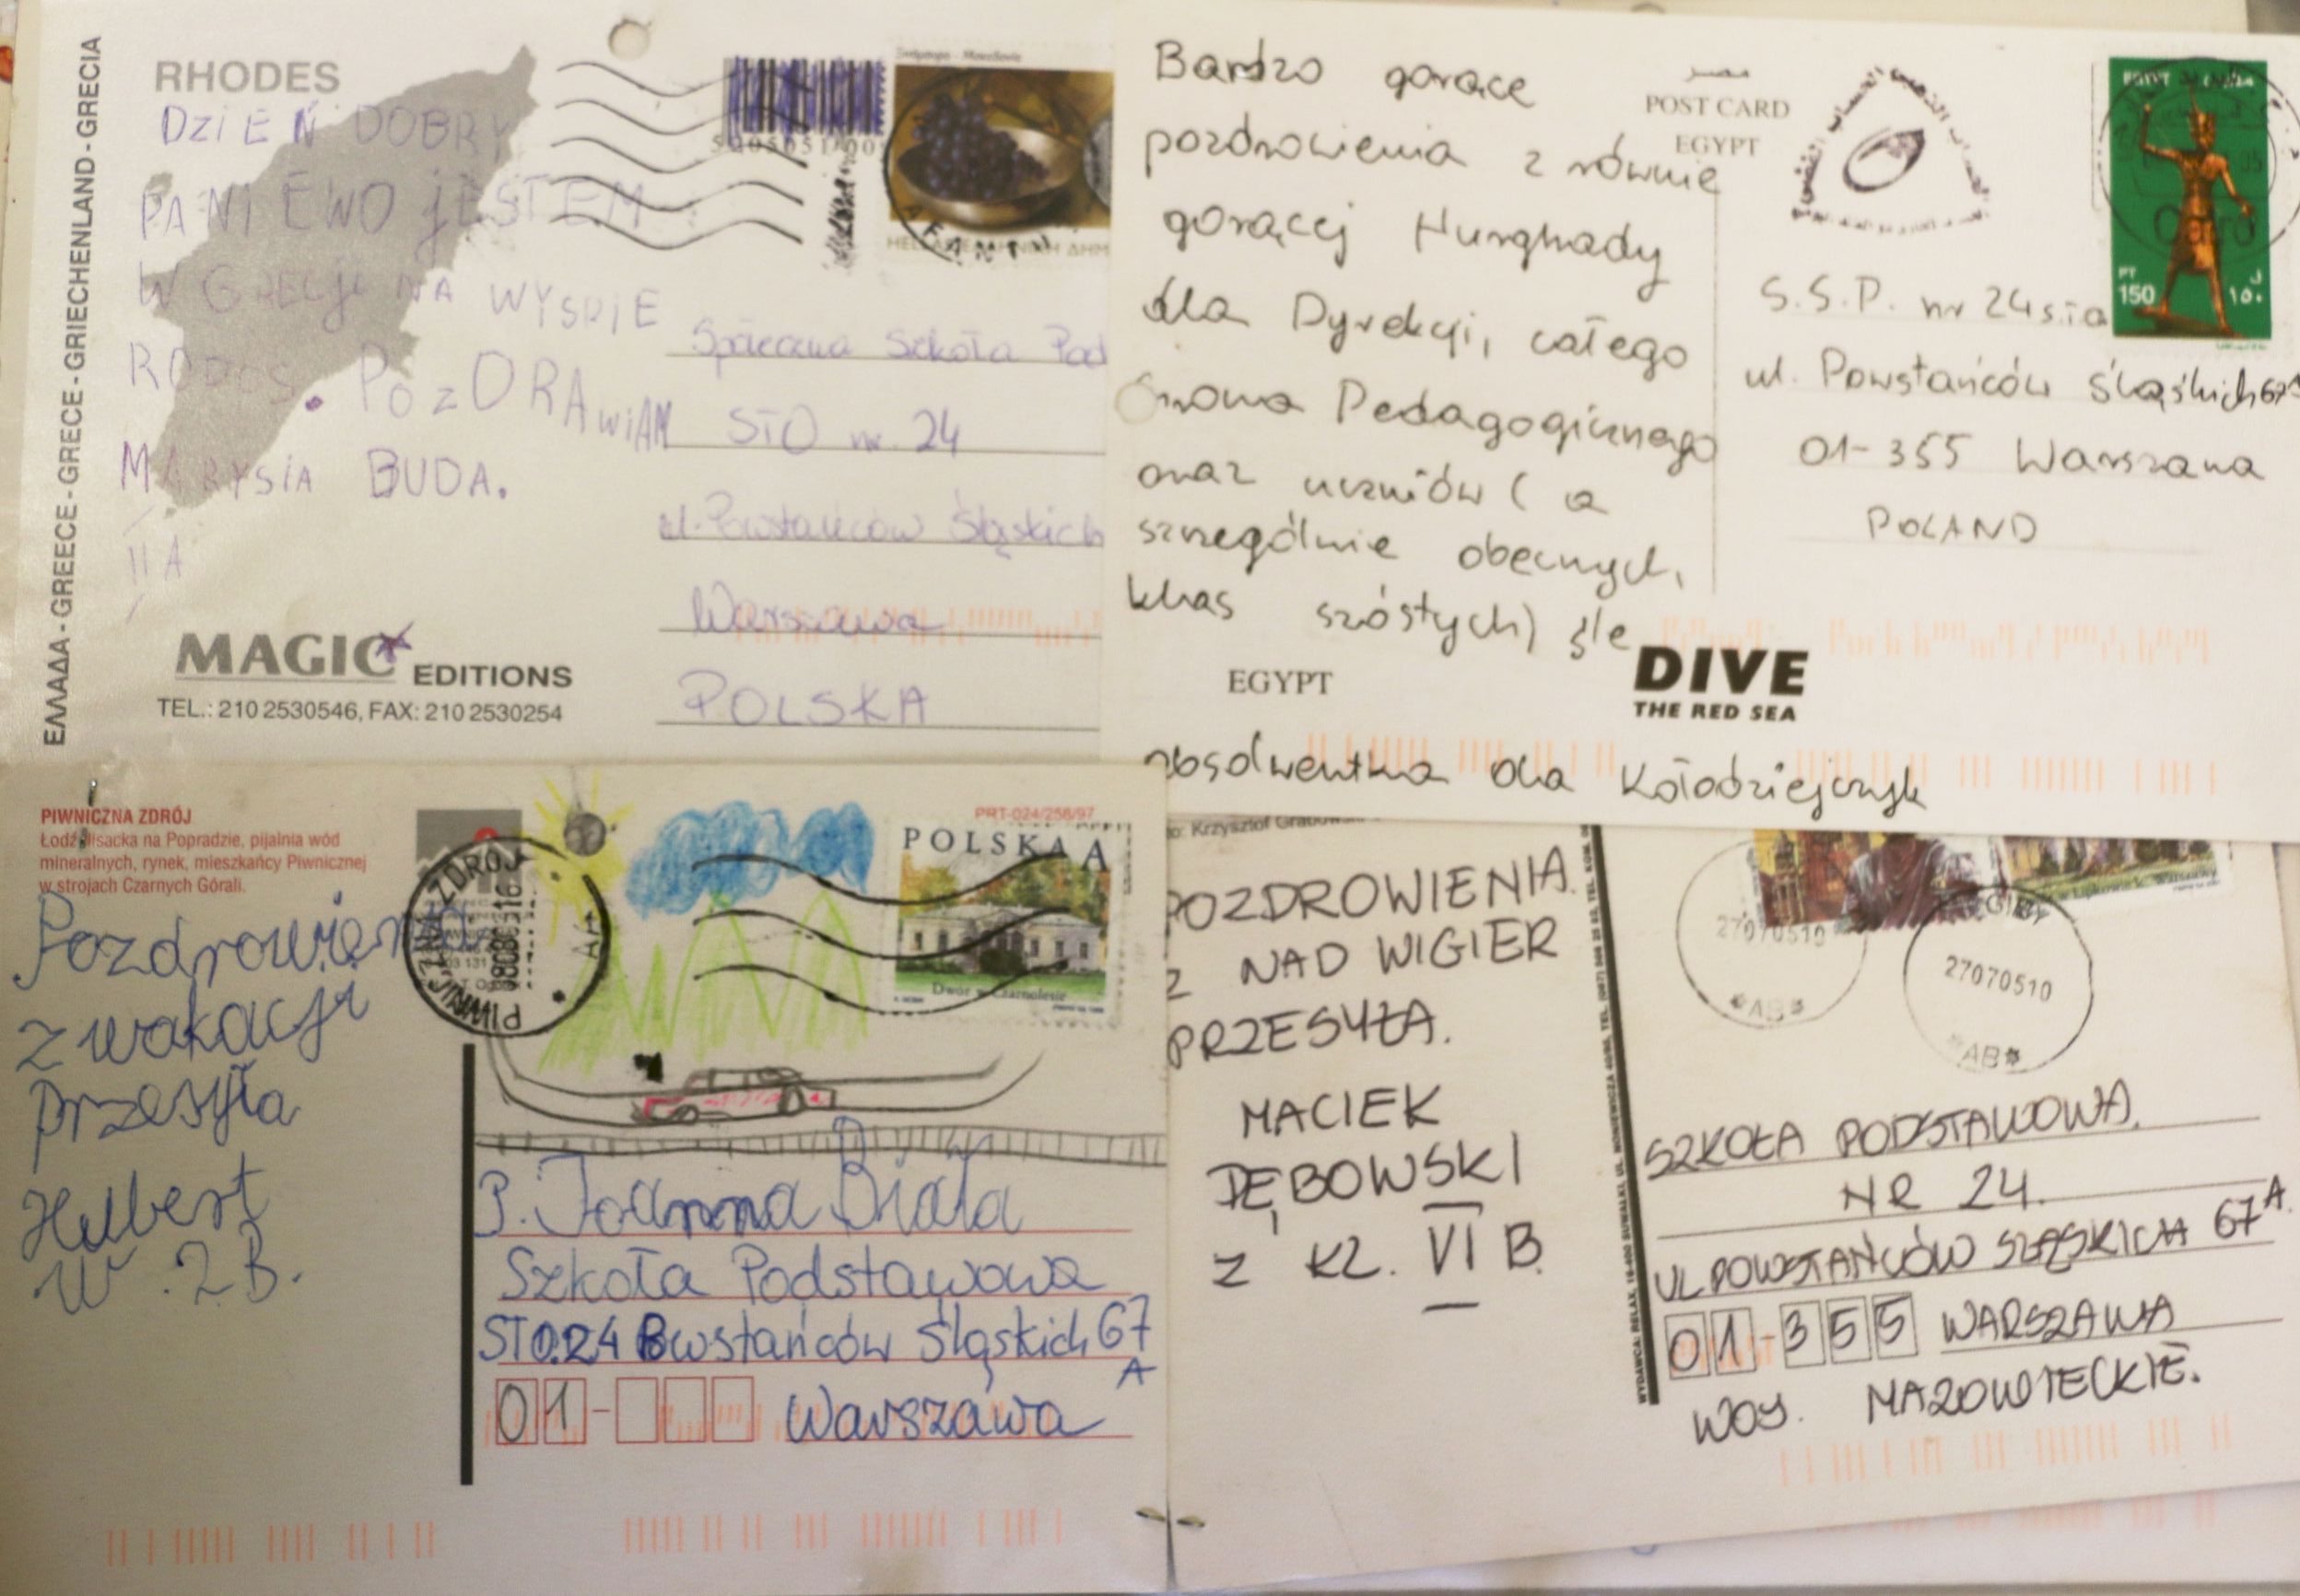 ΕΛΛΑΔΑ - GREECE - GRECE - GRIECHENLAND - GRECIA
RHODES
DZIEŃ DOBRY
PANI EWO jESTEM
W GRECJI NA WYSPIE
RODOS. POZDRAWIAM
MARYSIA BUDA.
II A
MAGIC EDITIONS
TEL.: 210 2530546, FAX: 210 2530254
Społeczna Szkoła Pod
STO nr. 24
ul. Powstańców Śląskich
Warszawa
POLSKA
Bardzo gorące
pozdrowienia z równie
gorącej Hurghady
dla Dyrekcji, całego
Grona Pedagogicznego
oraz uczniów ( a
szczególnie obecnych,
klas szóstych) śle
absolwentka Ola Kołodziejczyk
POST CARD
EGYPT
EGYPT
DIVE
THE RED SEA
PT
150
١٥٠
S.S.P. nr 24
ul. Powstańców Śląskich 67A
01-355 Warszawa
POLAND
PIWNICZNA ZDRÓJ
Łódź flisacka na Popradzie, pijalnia wód
mineralnych, rynek, mieszkańcy Piwnicznej
w strojach Czarnych Górali.
Pozdrowienia
z wakacji
przesyła
Hubert
W 2B.
PIWNICZNA ZDRÓJ
AA
PRT-024/256/97
POLSKA A
Dwór w Czarnolesie
P. Joanna Biała
Szkoła Podstawowa
STO.24 Powstańców Śląskich 67
A
01- Warszawa
POZDROWIENIA
Z NAD WIGIER
PRZESYŁA.
MACIEK
DĘBOWSKI
Z KL. VI B.
27070510
*AB*
27070510
*AB*
SZKOŁA PODSTAWOWA
NR 24.
UL POWSTAŃCÓW ŚLĄSKICH 67A.
01-355 WARSZAWA
WOJ. MAZOWIECKIE.